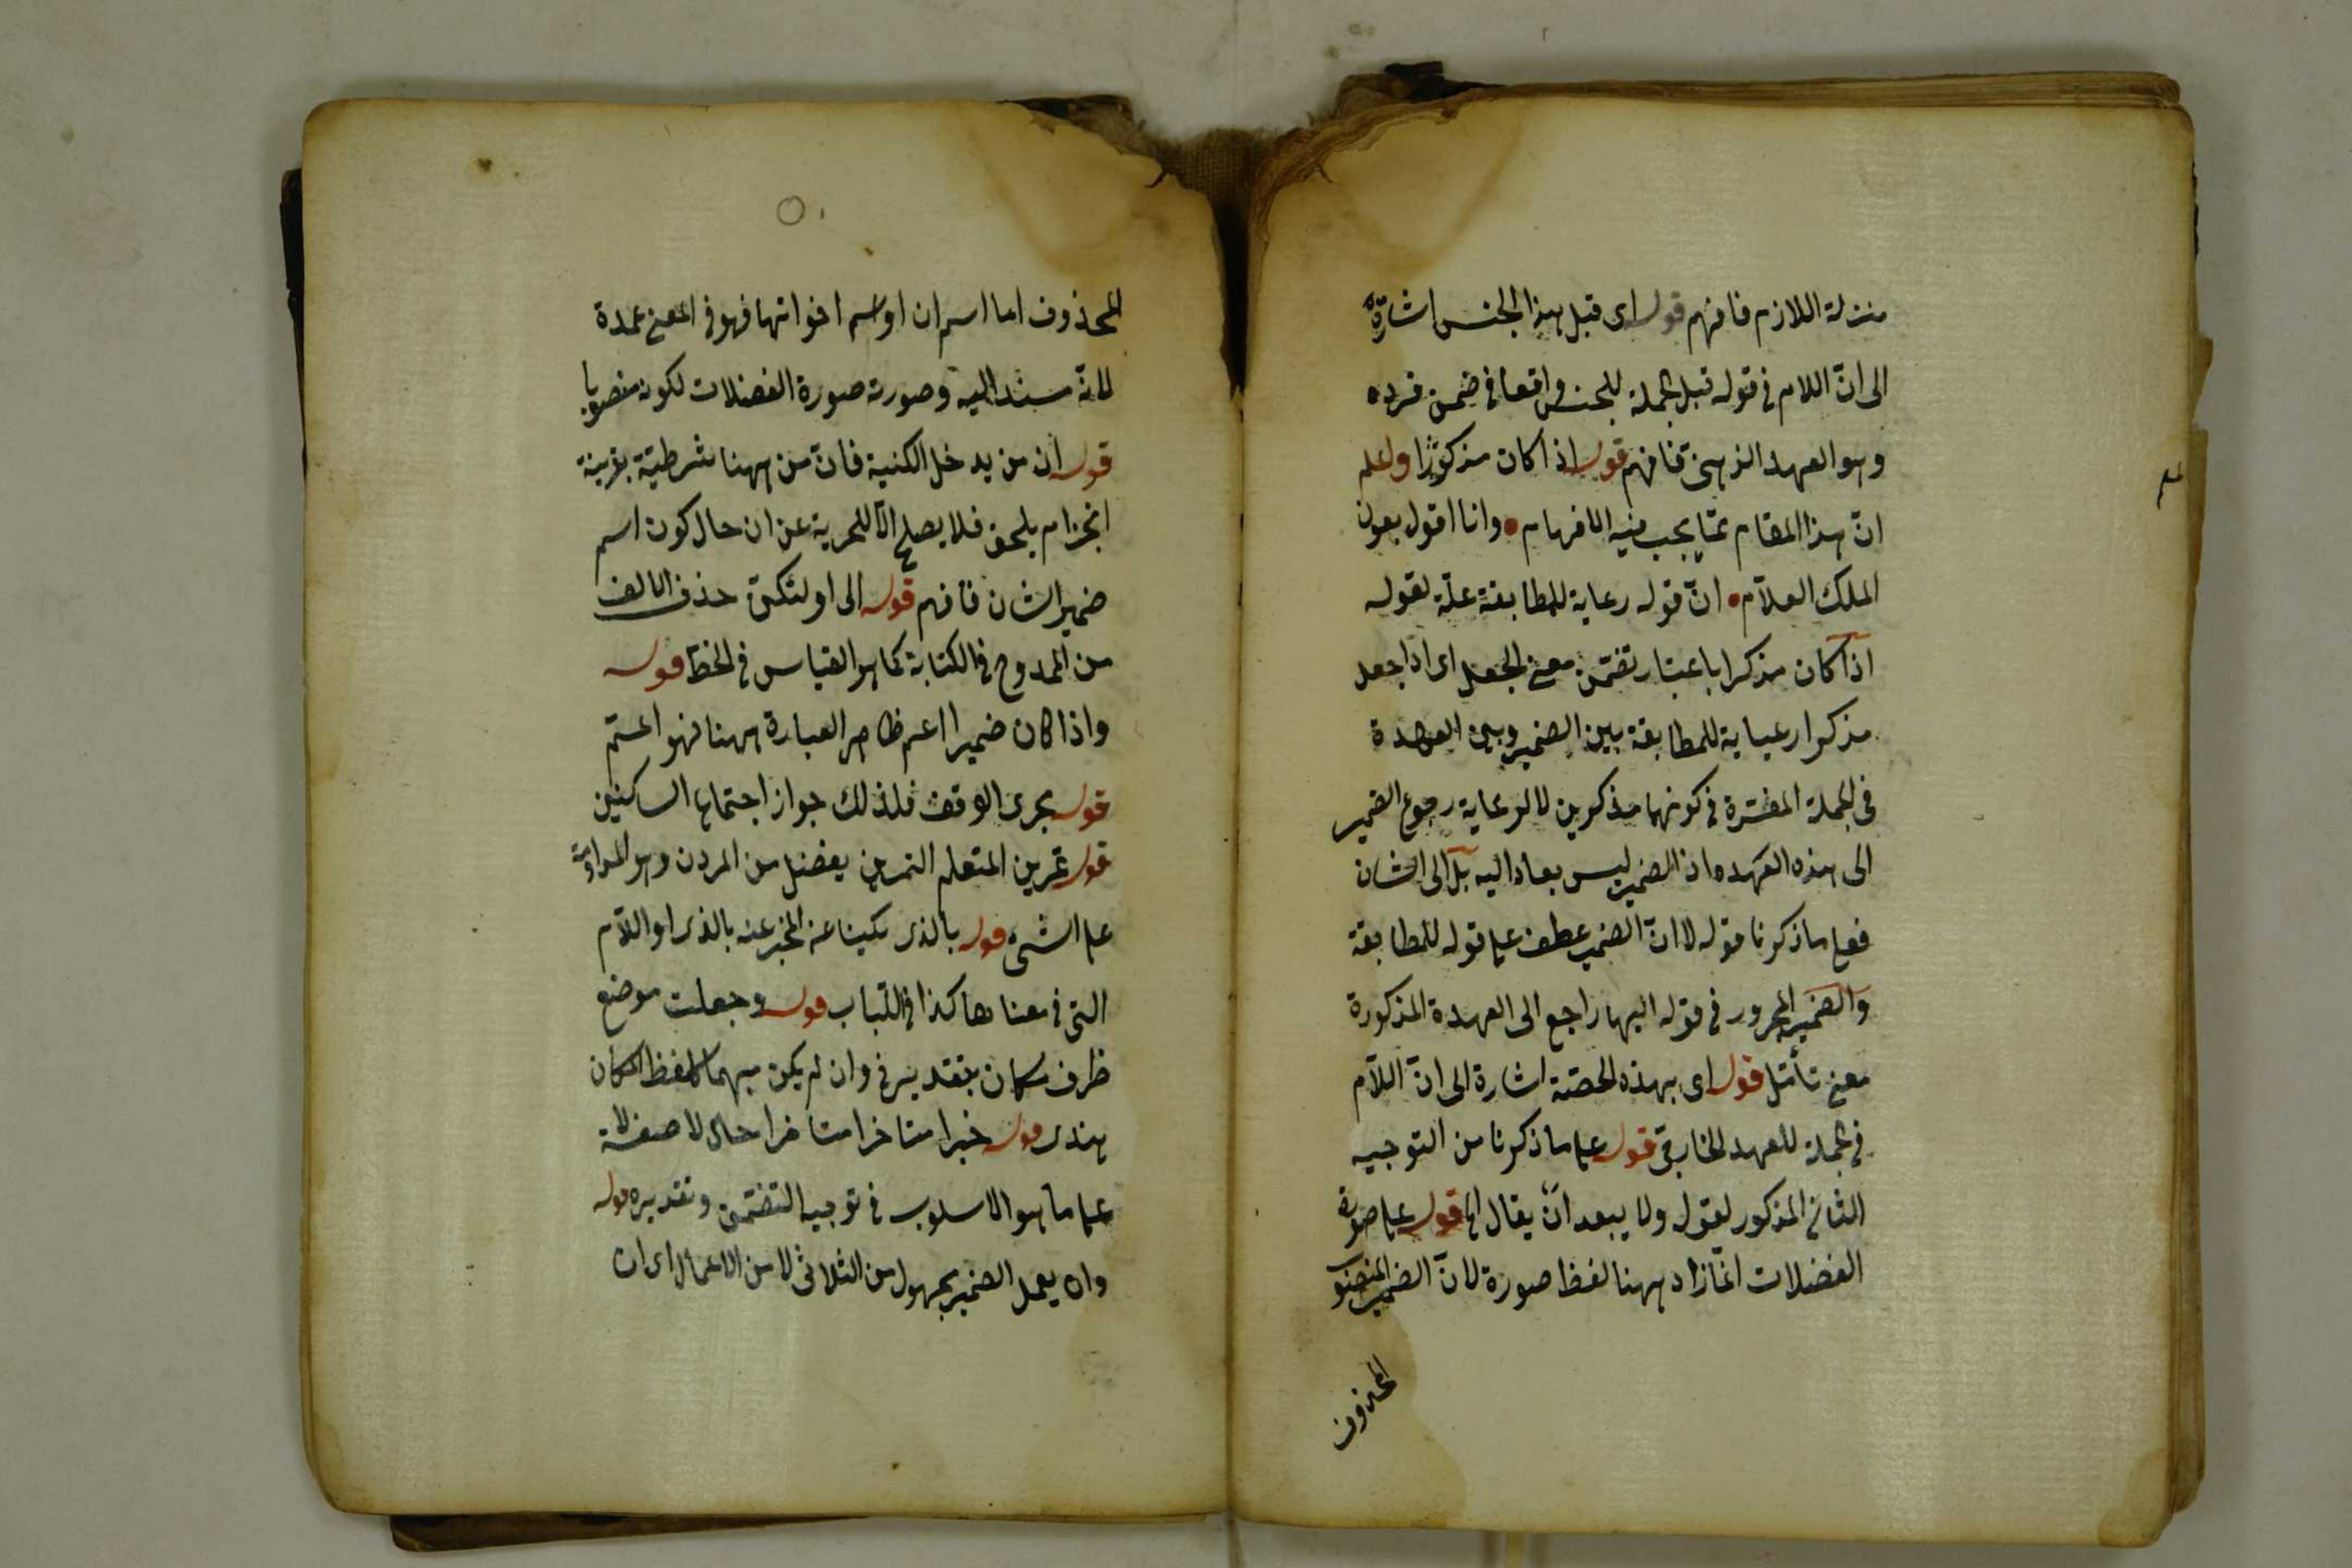 منزلة اللازم فافهم قوله اى قبل هذا الجنس اشارة
الى انّ اللام فى قوله قبل جملة للجنس واقعا فى ضمن فرده
وهو العهد الذهنى فافهم قوله اذا كان مذكورا واعلم
انّ هذا المقام ممّا يجب فيه الافهام • وانا اقول بعون
الملك العلاّم • انّ قوله رعاية للمطابقة علّة لقوله
اذا كان مذكرا باعتبار تضمّن معنى الجعل اى اذا جعل
مذكرا رعياية للمطابقة بين الضمير وبين العهدة
فى الجملة المفسّرة فى كونهما مذكرين لا لرعاية رجوع الضمير
الى هذه العهده اذ الضمير ليس بعاد اليه بل الى الشان
فعلى ما ذكرنا قوله لا انّ الضمير عطف على قوله للمطابقة
والضمير المجرور فى قوله اليها راجع الى العهدة المذكورة
معنى تأمّل قوله اى بهذه الحصّة اشارة الى انّ اللاّم
فى جملة للعهد الخارجى قوله على ما ذكرنا من التوجيه
الثانى المذكور لقول ولا يبعد انّ يقال اه قوله على صورة
الفضلات انما زاد ههنا لفظ صورة لانّ الضمير المنصوب
المحذوف
المحذوف اما اسم ان او اسم اخواتها فهو فى المعنى عمدة
لانّه مسند اليه وصورته صورة الفضلات لكونه منصوبا
قوله ان من يدخل الكنية فانّ من ههنا شرطيّة بقرينة
انجزام يلحق فلا يصلح الاّ للحرية عن ان حال كون اسم
ضمير الشان فافهم قوله الى اولئكنّ حذف الالف
من الممدوح فى الكتابة كما هو القياس فى الخط قوله
واذا كان ضميرا اعم ظاهر العبارة ههنا فهو المستم
قوله بجرى الوقف فلذلك جواز اجتماع الساكنين
قوله تمرين المتعلم التمرين يفضل من المردن وهو المداومة
على الشئ قوله بالذى يكينا عنه المخبر عنه بالذى او اللاّم
التى فى معناها كذا فى اللّباب قوله وجعلت موضع
ظرف مكان بتقدير فى وان لم يكن مبهما كلفظ المكان
هندى قوله خبرا متاخرا متاخرا حال لا صفة لانّه
على ما هو الاسلوب فى توجيه التضمّن وتقديره قوله
وان يعمل الضمير مجهول من الثلاثى لا من الاعمال اى ان